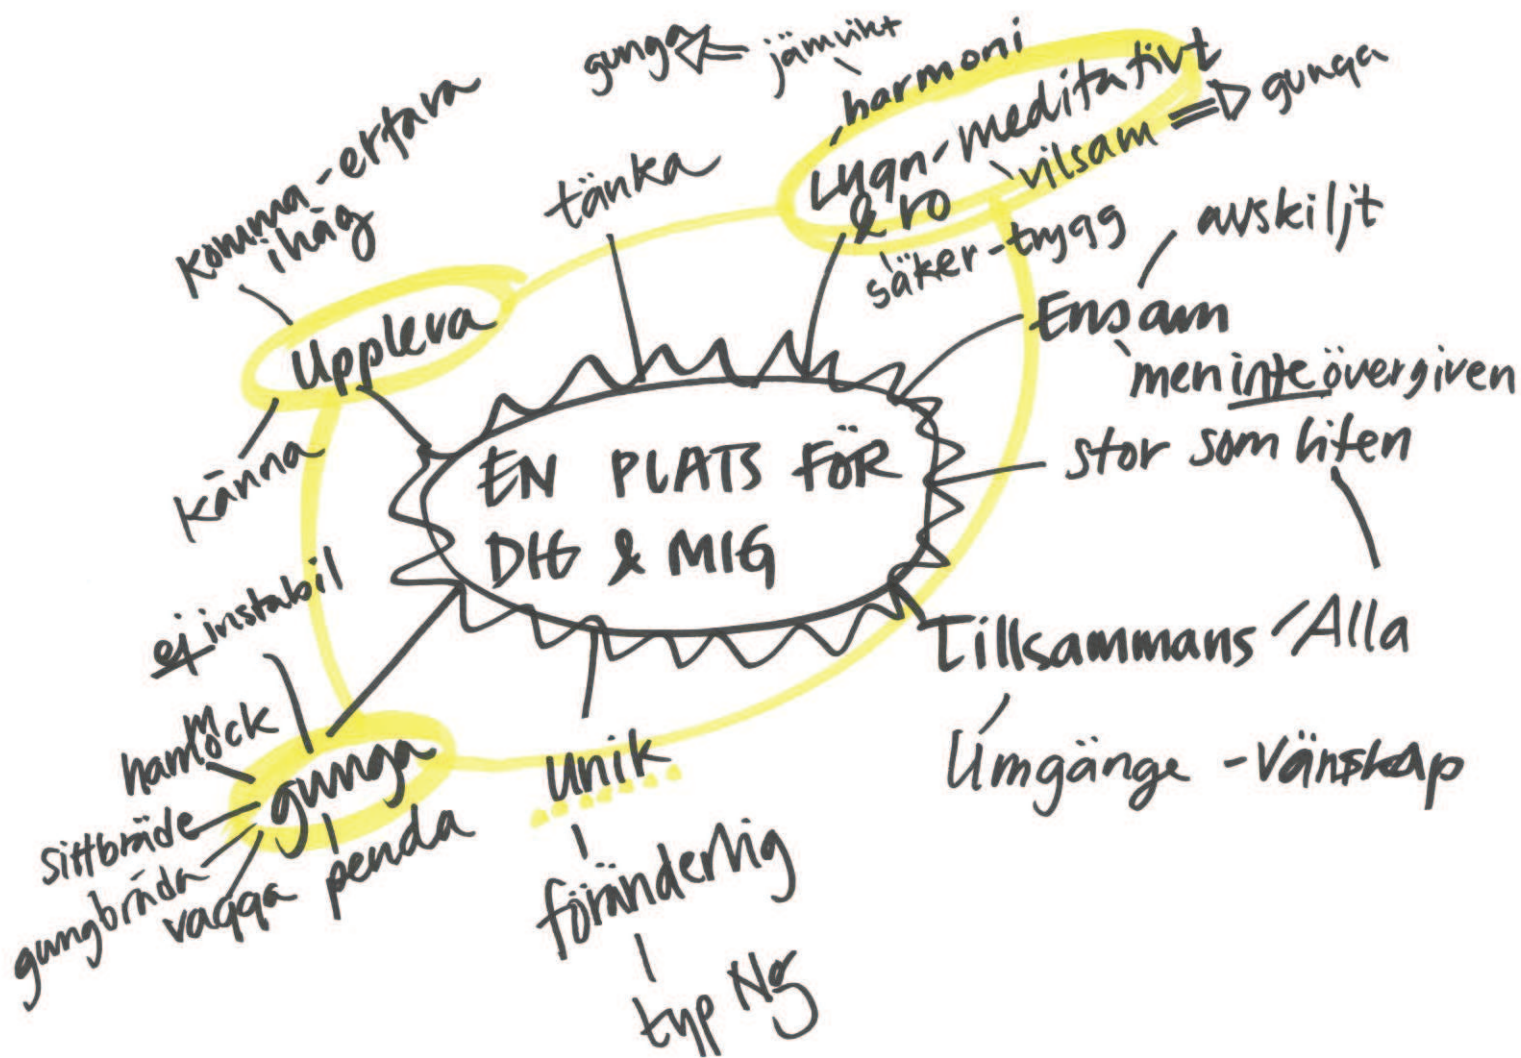 gunga
jämvikt
harmoni
Lugn - meditativt
& ro
vilsam
gunga
säker - trygg
tänka
komma - erfara
ihåg
Uppleva
känna
avskiljt
Ensam
men inte övergiven
stor som liten
EN PLATS FÖR
DIG & MIG
Tillsammans / Alla
Umgänge - Vänskap
ej instabil
hammock
gunga
sittbräde
gungbräda
vagga
penda
unik
föränderlig
typ Ng